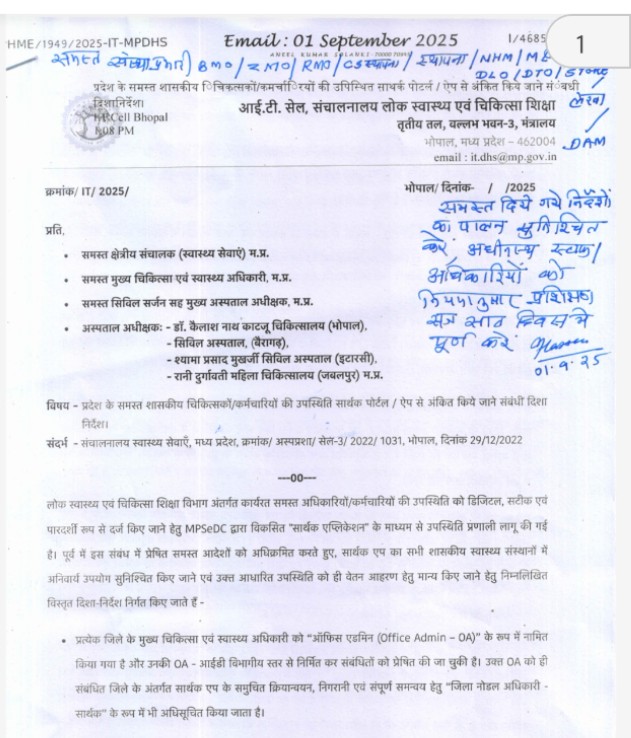 HME/1949/2025-IT-MPDHS
Email : 01 September 2025
1/4685
1
समस्त संस्था प्रभारी BMO / ZMO / RMO / CS / स्थापना / NHM / M&E
DLO / DTO / Store
प्रदेश के समस्त शासकीय चिकित्सकों/कर्मचारियों की उपस्थिति सार्थक पोर्टल / ऐप से अंकित किये जाने संबंधी
दिशानिर्देश।
IT Cell Bhopal
8:08 PM
आई.टी. सेल, संचालनालय लोक स्वास्थ्य एवं चिकित्सा शिक्षा
तृतीय तल, वल्लभ भवन-3, मंत्रालय
भोपाल, मध्य प्रदेश – 462004
email : it.dhs@mp.gov.in
लेखा
/
DAM
क्रमांक/ IT/ 2025/
भोपाल/ दिनांक- / /2025
समस्त दिये गये निर्देशों
का पालन सुनिश्चित
करें अधीनस्थ स्टाफ/
अधिकारियों को
नियमानुसार प्रशिक्षण
सत्र सात दिवस में
पूर्ण करें
01.9.25
प्रति,
• समस्त क्षेत्रीय संचालक (स्वास्थ्य सेवाएँ) म.प्र.
• समस्त मुख्य चिकित्सा एवं स्वास्थ्य अधिकारी, म.प्र.
• समस्त सिविल सर्जन सह मुख्य अस्पताल अधीक्षक, म.प्र.
• अस्पताल अधीक्षकः - डॉ. कैलाश नाथ काटजू चिकित्सालय (भोपाल),
- सिविल अस्पताल, (बैरागढ़),
- श्यामा प्रसाद मुखर्जी सिविल अस्पताल (इटारसी),
- रानी दुर्गावती महिला चिकित्सालय (जबलपुर) म.प्र.
विषय – प्रदेश के समस्त शासकीय चिकित्सकों/कर्मचारियों की उपस्थिति सार्थक पोर्टल / ऐप से अंकित किये जाने संबंधी दिशा
निर्देश।
संदर्भ – संचालनालय स्वास्थ्य सेवाएँ, मध्य प्रदेश, क्रमांक/ अस्पप्रशा/ सेल-3/ 2022/ 1031, भोपाल, दिनांक 29/12/2022
----00----
लोक स्वास्थ्य एवं चिकित्सा शिक्षा विभाग अंतर्गत कार्यरत समस्त अधिकारियों/कर्मचारियों की उपस्थिति को डिजिटल, सटीक एवं
पारदर्शी रूप से दर्ज किए जाने हेतु MPSeDC द्वारा विकसित "सार्थक एप्लिकेशन" के माध्यम से उपस्थिति प्रणाली लागू की गई
है। पूर्व में इस संबंध में प्रेषित समस्त आदेशों को अधिक्रमित करते हुए, सार्थक एप का सभी शासकीय स्वास्थ्य संस्थानों में
अनिवार्य उपयोग सुनिश्चित किए जाने एवं उक्त आधारित उपस्थिति को ही वेतन आहरण हेतु मान्य किए जाने हेतु निम्नलिखित
विस्तृत दिशा-निर्देश निर्गत किए जाते हैं -
• प्रत्येक जिले के मुख्य चिकित्सा एवं स्वास्थ्य अधिकारी को "ऑफिस एडमिन (Office Admin – OA)" के रूप में नामित
किया गया है और उनकी OA - आईडी विभागीय स्तर से निर्मित कर संबंधितों को प्रेषित की जा चुकी है। उक्त OA को ही
संबंधित जिले के अंतर्गत सार्थक एप के समुचित क्रियान्वयन, निगरानी एवं संपूर्ण समन्वय हेतु "जिला नोडल अधिकारी -
सार्थक" के रूप में भी अधिसूचित किया जाता है।